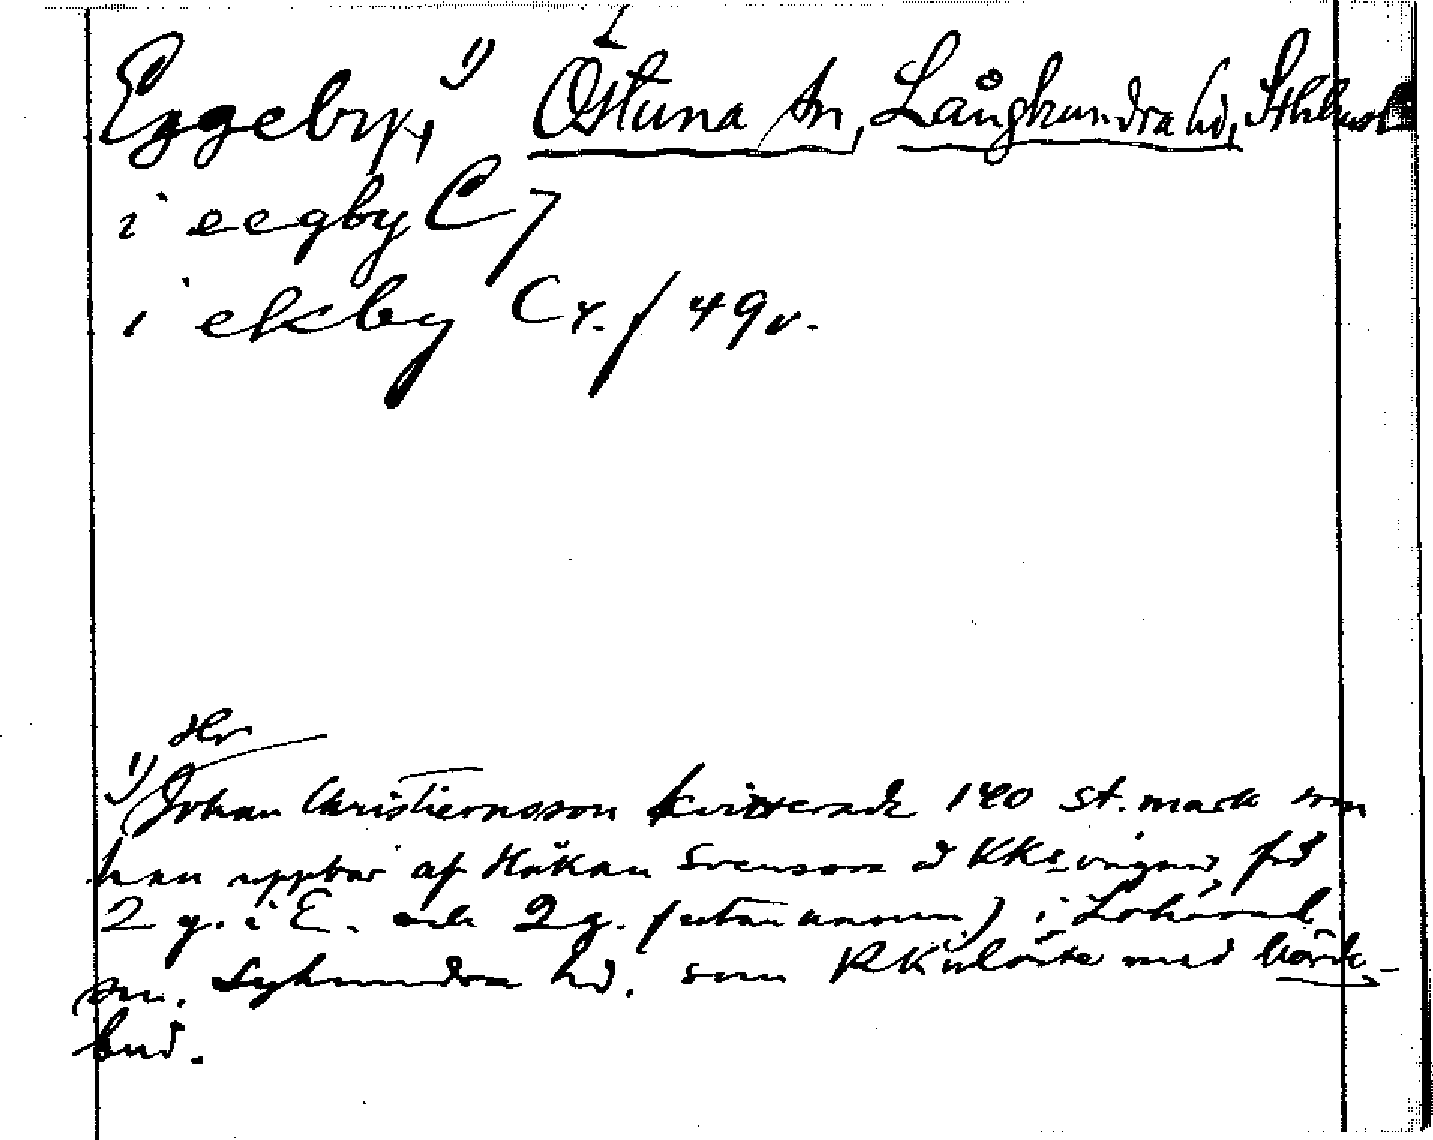 Eggeby,¹⁾ Östuna sn, Långhundra hd, Sthlms l
i eegby C 7
i ekby Cr. f 49 v.
Hr
¹⁾ Johan Christiernsson kvitterade 140 st. mark som
han uppbar af Håkan Svensson å KKs vägnar, för
2 g. i E. och 2 g. (utan namn) i Lohärad
sn. Lyhundra hd. som KK inlöste med
bud.